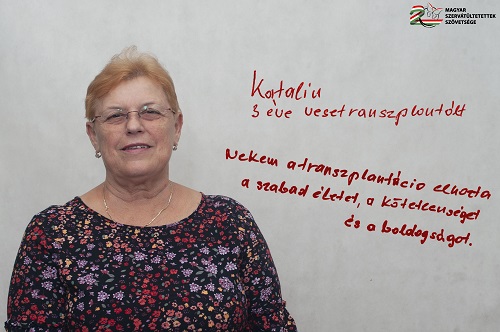 MAGYAR
SZERVÁTÜLTETETTEK
SZÖVETSÉGE
Katalin
3 éve vesetranszplantált
Nekem a transzplantáció elhozta
a szabad életet, a kötetlenséget
és a boldogságot.